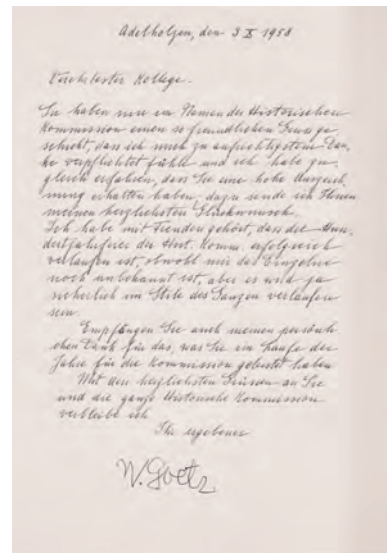 Adelholzen, den 3 X 1958
Verehrtester Kollege.
Sie haben mir im Namen der Historischen
Kommission einen so freundlichen Gruss ge¬
schickt, dass ich mich zu aufrichtigstem Dan¬
ke verpflichtet fühle und ich habe zu¬
gleich erfahren, dass Sie eine hohe Auszeich¬
nung erhalten haben, dazu sende ich Ihnen
meinen herzlichsten Glückwunsch.
Ich habe mit Freuden gehört, dass die Hun¬
dertjahrfeier der Hist. Komm. erfolgreich
verlaufen ist, obwohl mir das Einzelne
noch unbekannt ist, aber es wird ja
sicherlich im Stile des Ganzen verlaufen
sein.
Empfangen Sie auch meinen persönli¬
chen Dank für das, was Sie im Laufe der
Jahre für die Kommission geleistet haben
Mit den herzlichsten Grüssen an Sie
und die ganze Historische Kommission
verbleibe ich
Ihr ergebener
W. Goetz